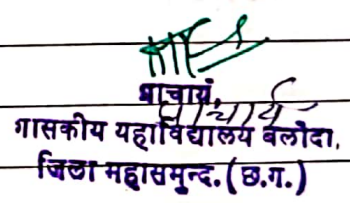 प्राचार्य,
प्राचार्य
शासकीय महाविद्यालय बलौदा,
जिला महासमुन्द. (छ.ग.)